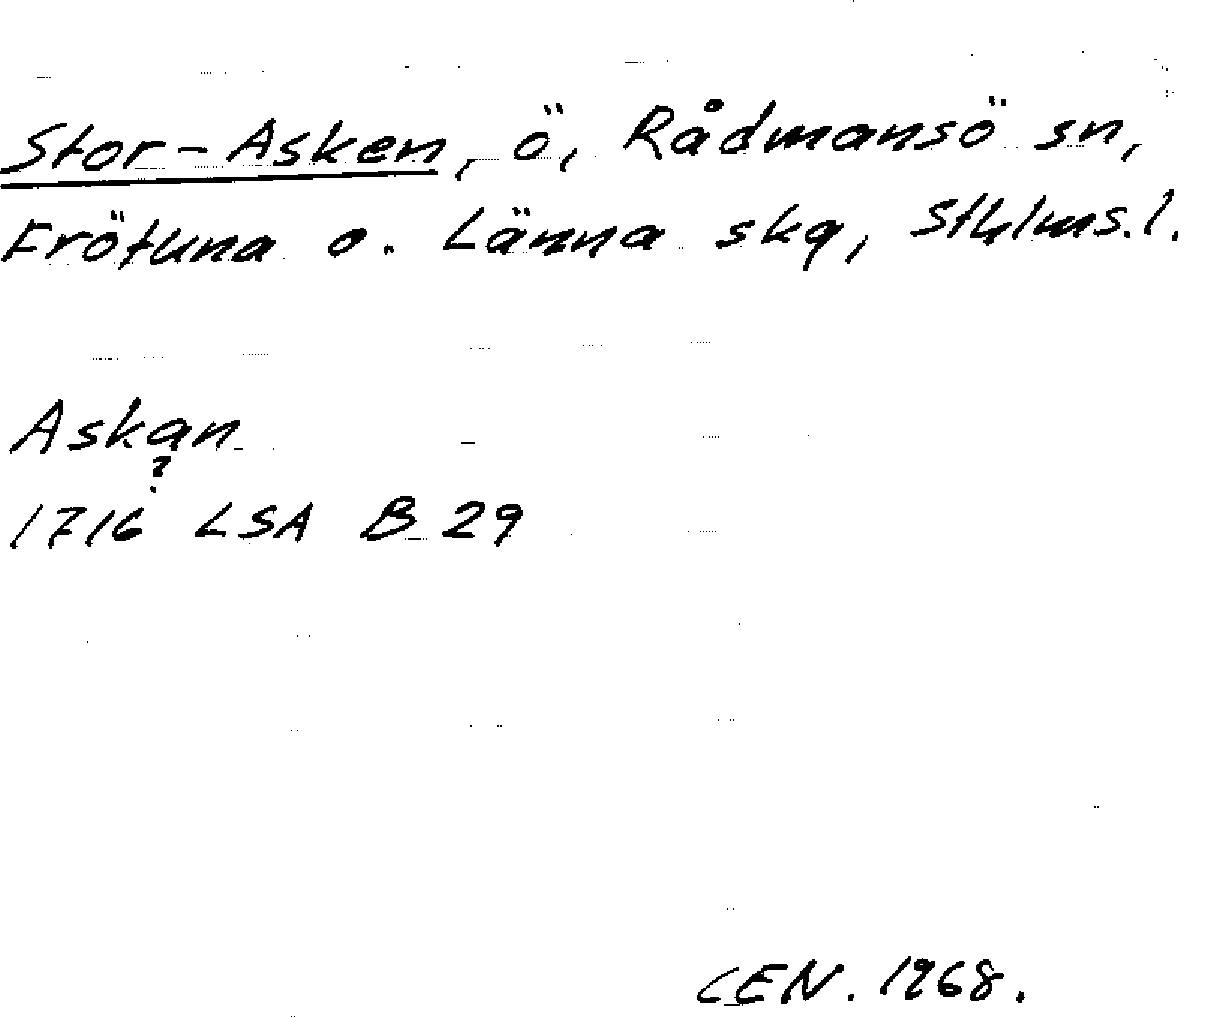 Stor-Asken, ö, Rådmansö sn,
Frötuna o. Länna skg, Sthlms.l.
Askan
?
1716 LSA B 29
CEN. 1968.